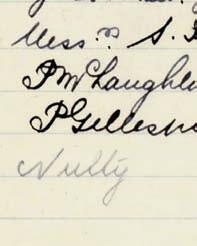 Mess.rs S.
P McLaughl
P Gillesp
Nulty